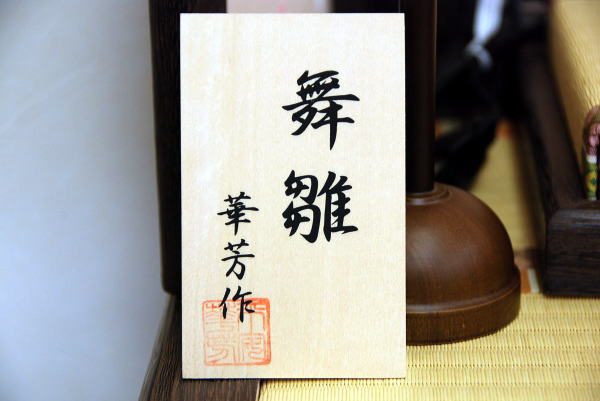 舞雛
華芳作